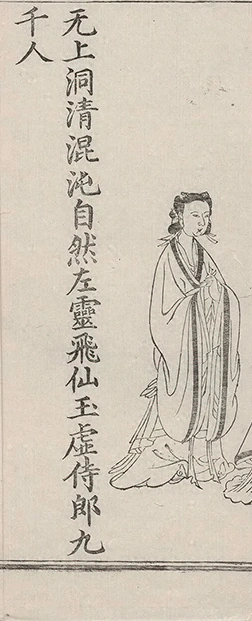 无上洞清混沌自然左靈飛仙玉虛侍郎九
千人